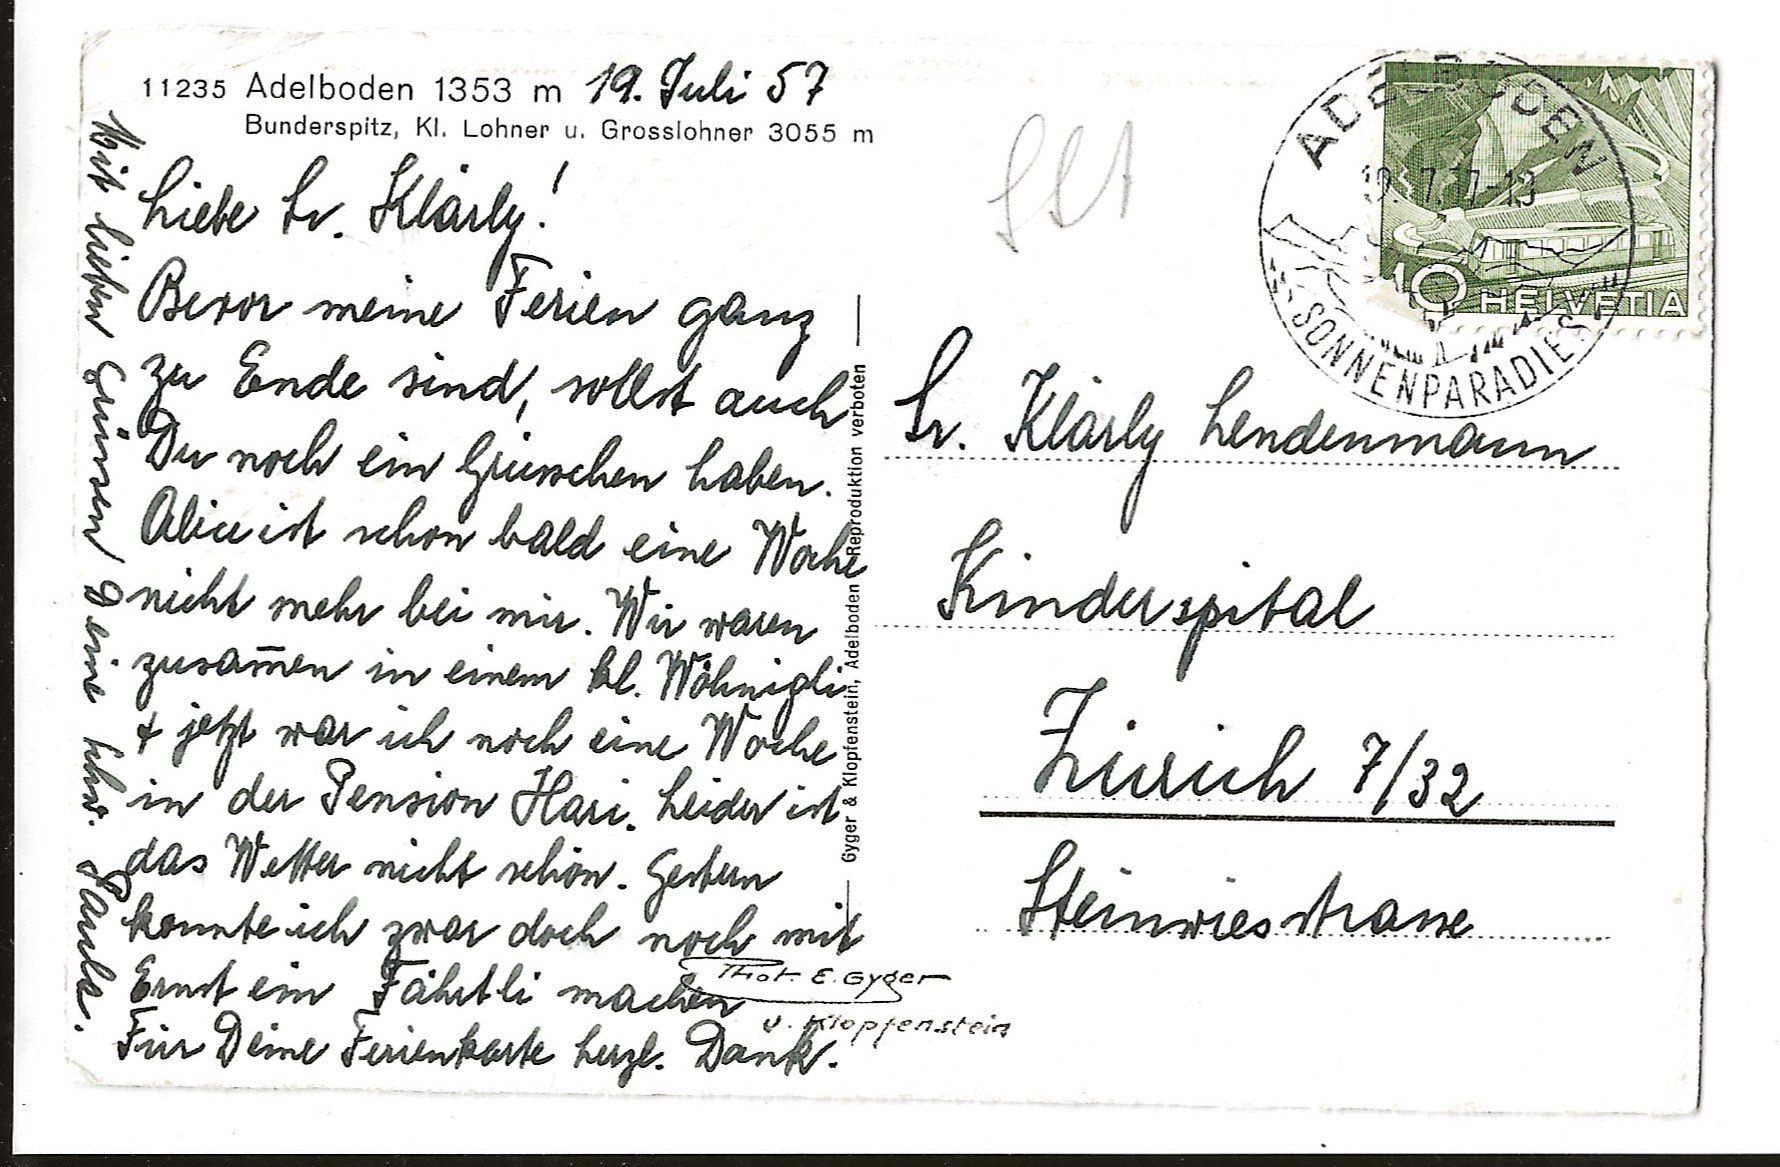 11235 Adelboden 1353 m 19. Juli 57
Bunderspitz, Kl. Lohner u. Grosslohner 3055 m
Liebe Sr. Klärly!
Bevor meine Ferien ganz
zu Ende sind, sollst auch
Du noch ein Grüsschen haben.
Alice ist schon bald eine Woche
nicht mehr bei mir. Wir waren
zusam̅en in einem kl. Wöhnigli
+ jetzt war ich noch eine Woche
in der Pension Hari. Leider ist
das Wetter nicht schön. Gestern
konnte ich zwar doch noch mit
Ernst ein Fährtli machen
Für Deine Ferienkarte herzl. Dank.
Mit lieben Grüssen Deine Schw. Paula.
Gyger & Klopfenstein, Adelboden Reproduktion verboten
Phot. E. Gyger
u. Klopfenstein
ADELBODEN
SONNENPARADIES
10 HELVETIA
Sr. Klärly Lendenmann
Kinderspital
Zürich 7/32
Steinwiesstrasse